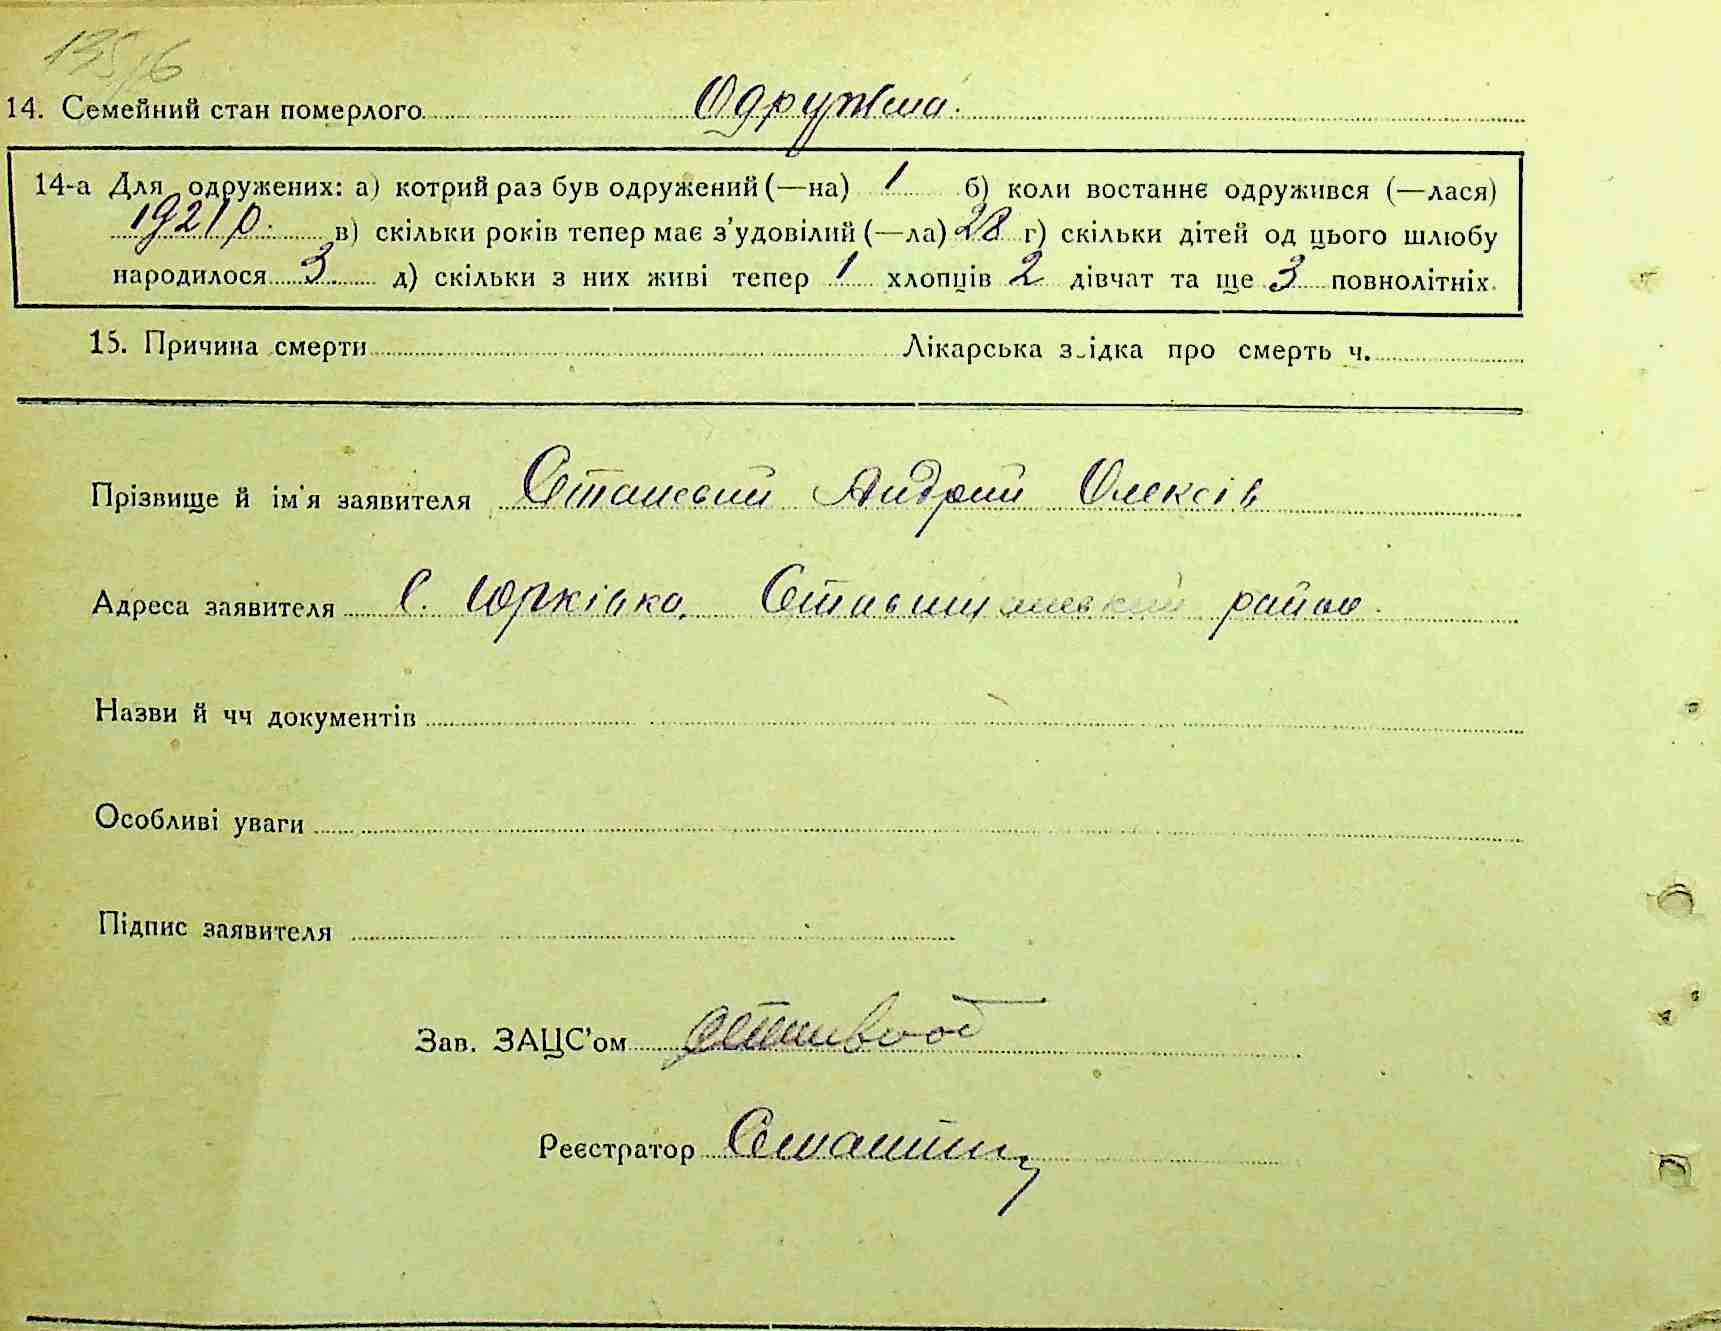 135/6
14. Семейний стан померлого Одружена.
14-а Для одружених: а) котрий раз був одружений (—на) 1 б) коли востаннє одружився (—лася)
1921 р. в) скільки років тепер має з'удовілий (—ла) 28 г) скільки дітей од цього шлюбу
народилося 3 д) скільки з них живі тепер 1 хлопців 2 дівчат та ще 3 повнолітніх.
15. Причина смерти Лікарська з ідка про смерть ч.
Прізвище й ім'я заявителя Андрий Олексів
Адреса заявителя с. Юрківка, Ставищанський район.
Назви й чч документів
Особливі уваги
Підпис заявителя
Зав. ЗАЦС'ом
Реєстратор